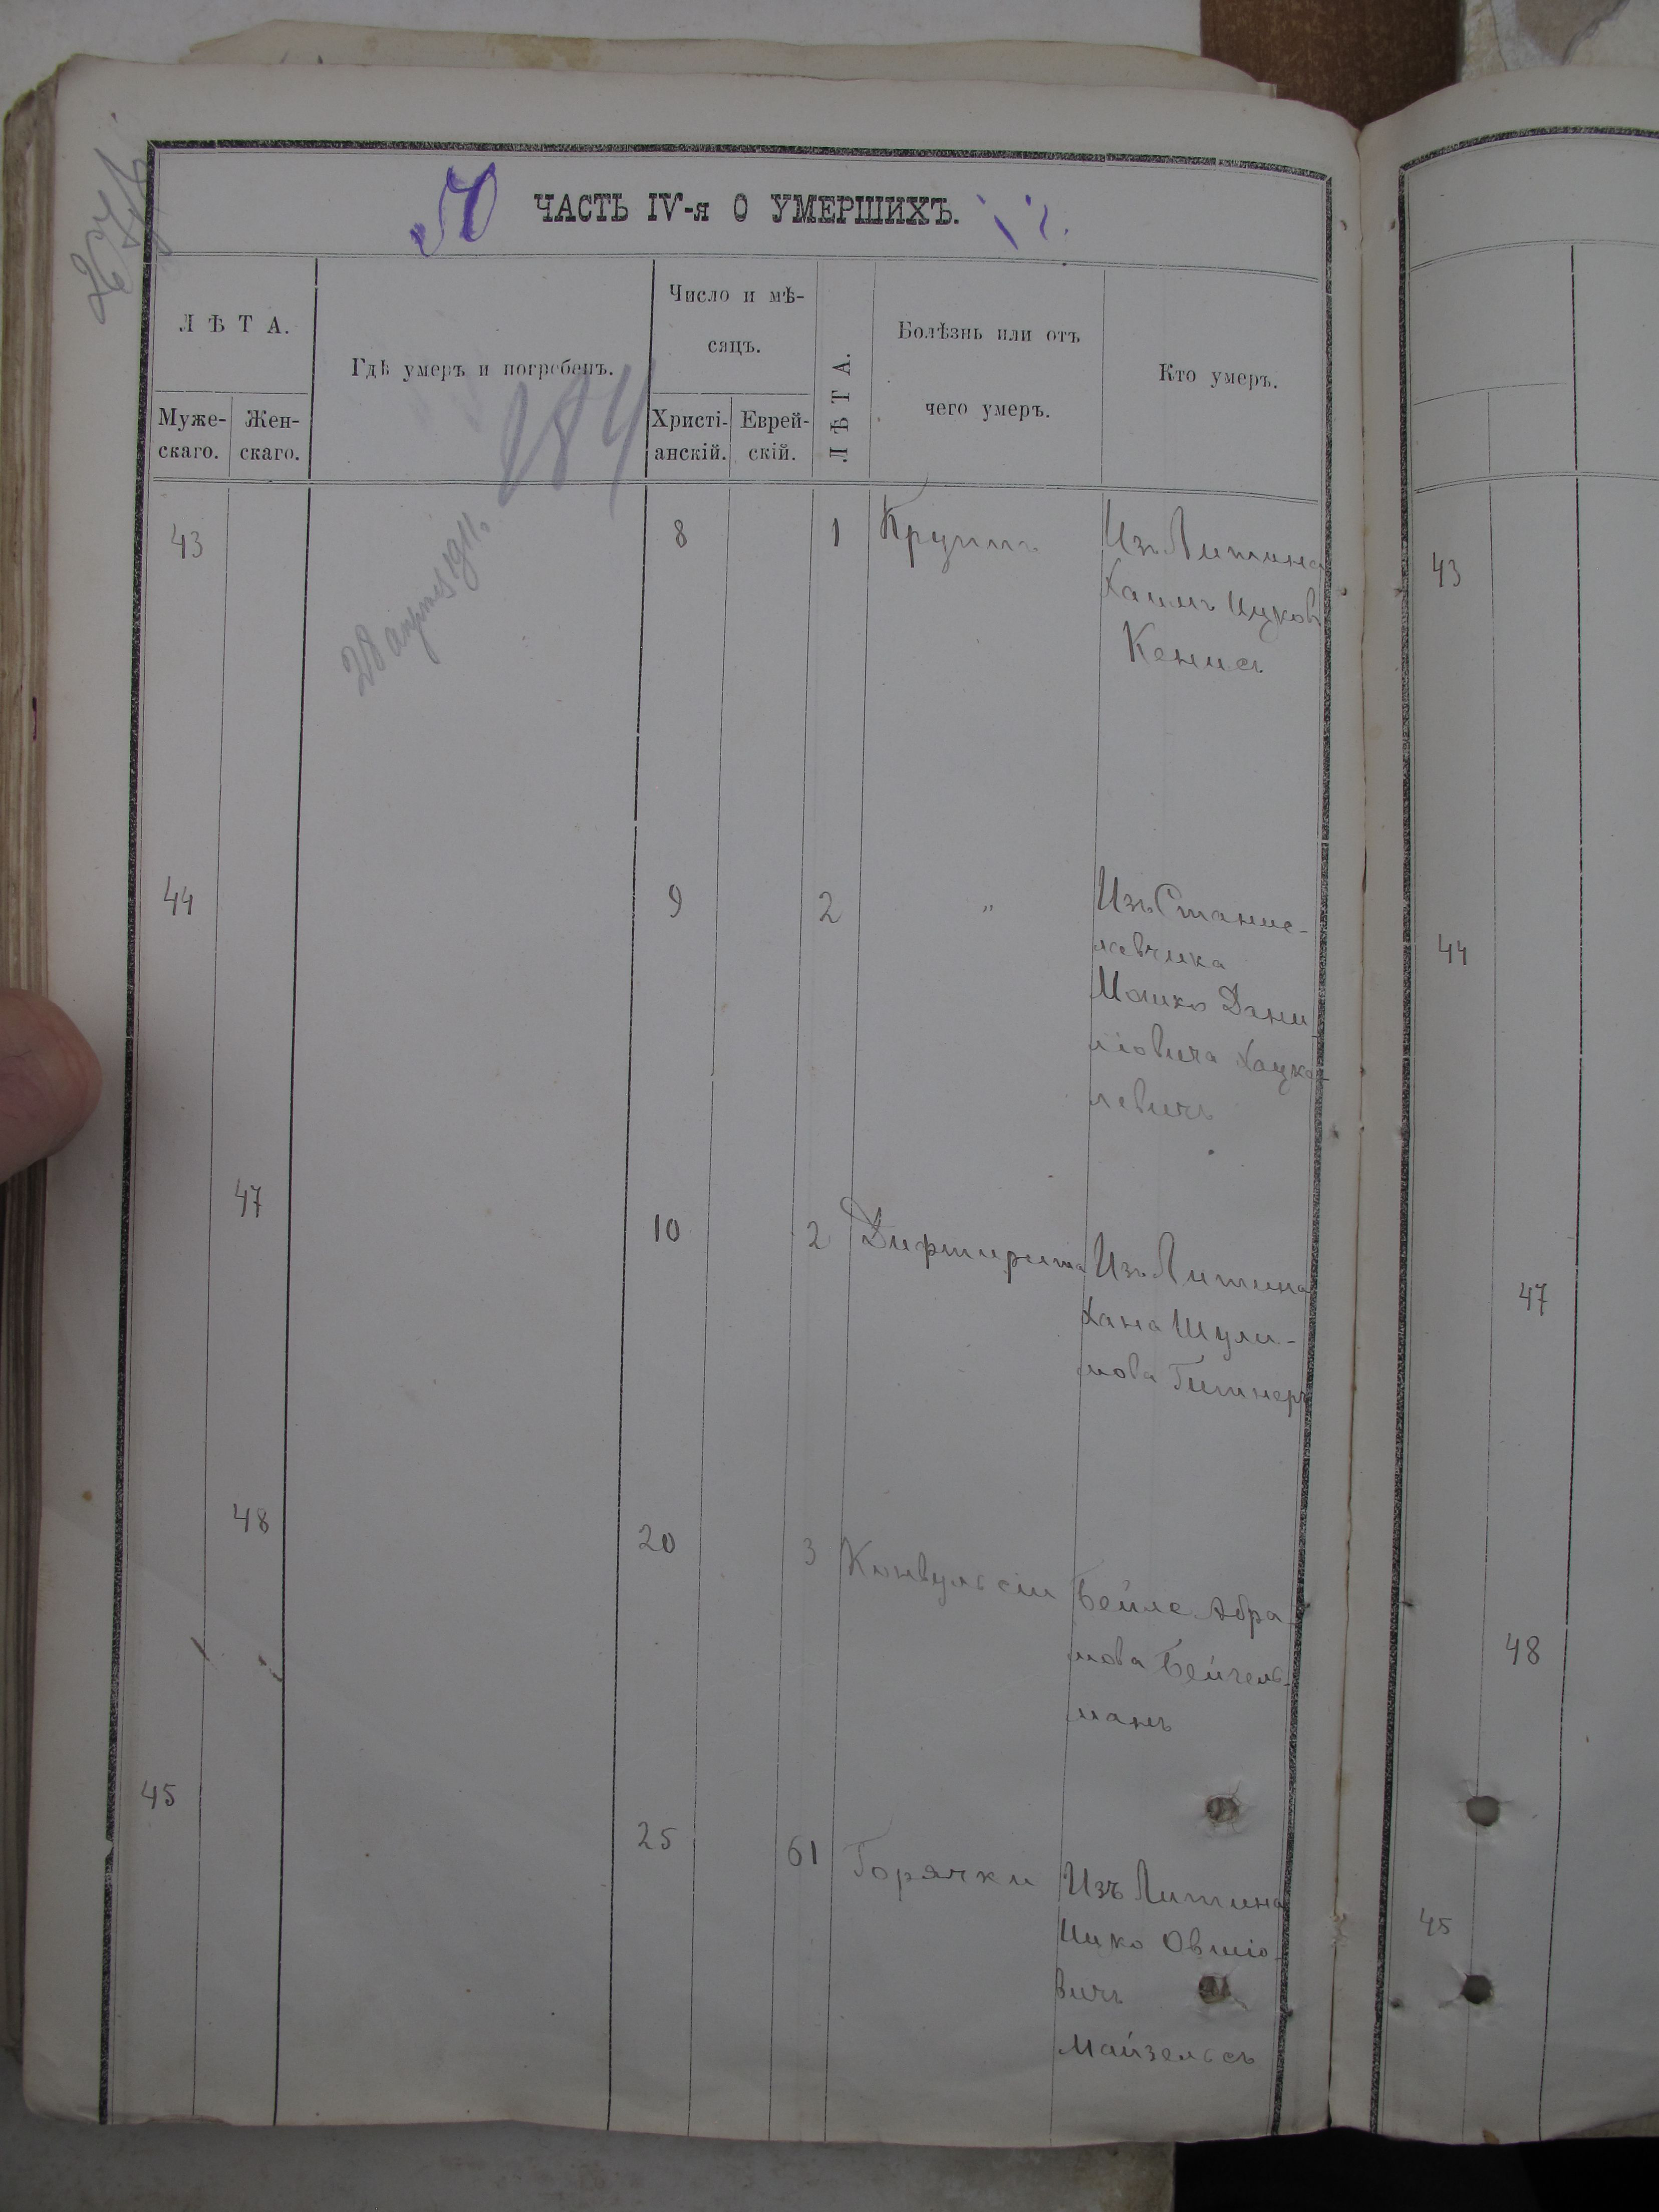 ЧАСТЬ IV-я О УМЕРШИХЪ.
ЛѢТА.
Муже-
скаго.
Жен-
скаго.
Гдѣ умеръ и погребенъ.
Число и мѣ-
сяцъ.
Христі-
анскій.
Еврей-
скій.
ЛѢТА.
Болѣзнь или отъ
чего умеръ.
Кто умеръ.
184
28 апреля 1911г.
43 8 1 Крупъ Изъ Литина
Хаимъ Ицков
Кенисъ
43
44 9 2 " Изъ Станис-
лавчика
Мошко Дани
ліовича Хацка-
левичъ
44
47 10 2 Дифтирита Изъ Литина
Хана Шули-
мова Гитнеръ
47
48 20 3 Конвульсіи Бейле Абра-
мова Бейгель-
манъ
48
45 25 61 Горячки Изъ Литина
Ицко Овшіо-
вичъ
Майзельсъ
45